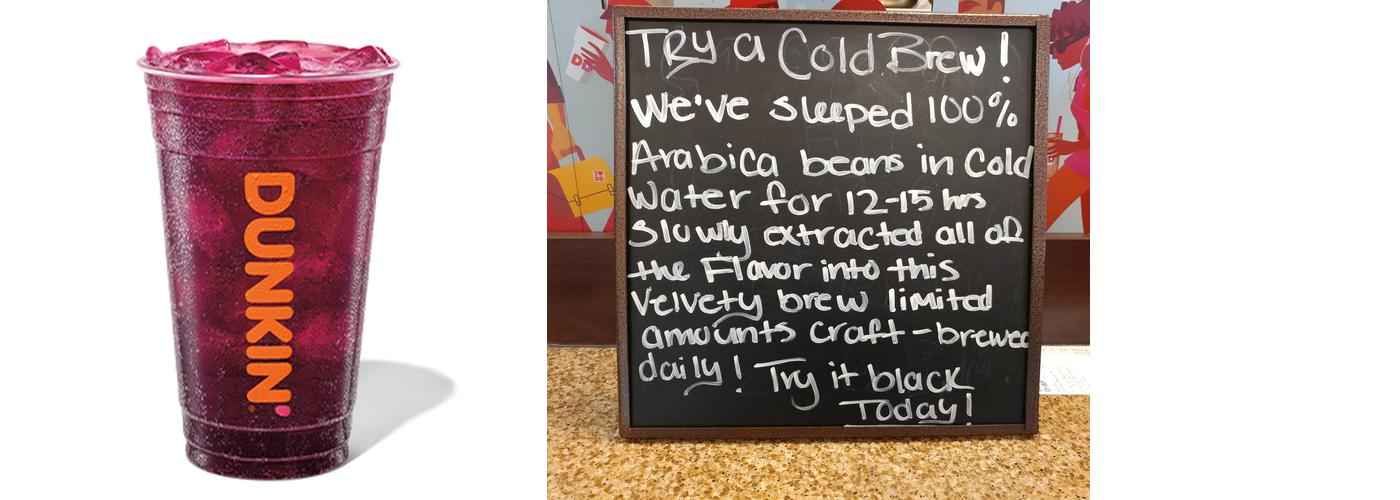 DUNKIN'
TRy a Cold Brew!
We've sleeped 100%
Arabica beans in Cold
Water for 12-15 hrs
Slowly extracted all of
the Flavor into this
Velvety brew limited
amounts craft-brewed
daily! Try it black
Today!
I ♥
DD